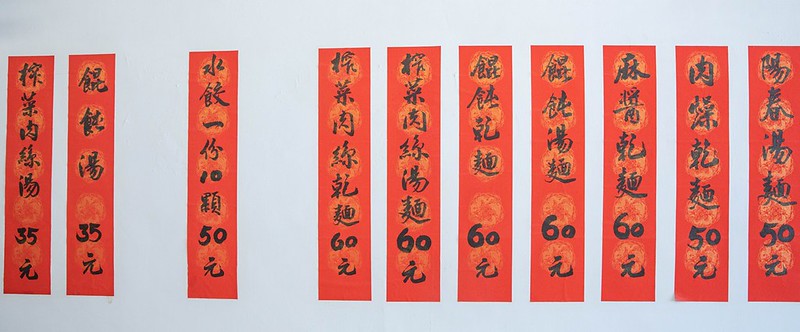 陽春湯麵 50元
肉燥乾麵 50元
麻醬乾麵 60元
餛飩湯麵 60元
餛飩乾麵 60元
榨菜肉絲湯麵 60元
榨菜肉絲乾麵 60元
水餃一份10顆 50元
餛飩湯 35元
榨菜肉絲湯 35元